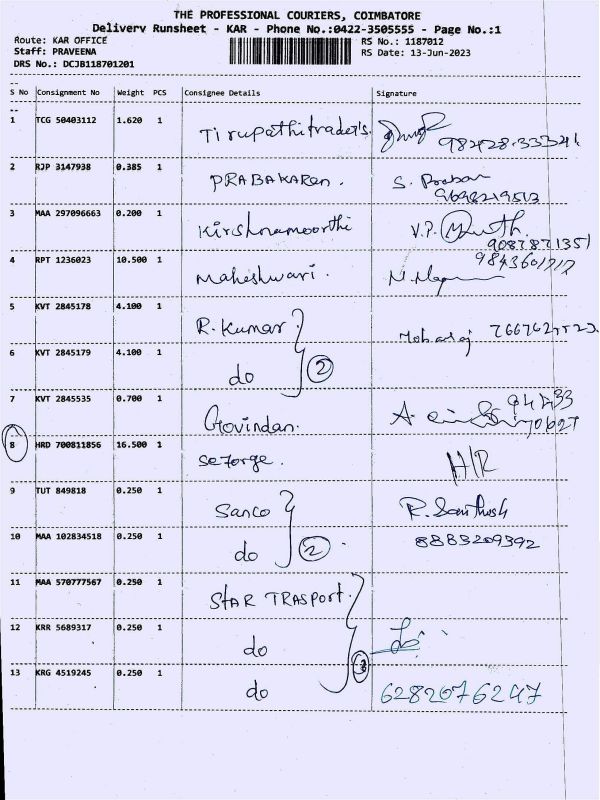 THE PROFESSIONAL COURIERS, COIMBATORE
Delivery Runsheet - KAR - Phone No.:0422-3505555 - Page No.:1
Route: KAR OFFICE RS No.: 1187012
Staff: PRAVEENA RS Date: 13-Jun-2023
DRS No.: DCJB118701201
S No Consignment No Weight PCS Consignee Details Signature
1 TCG 50403112 1.620 1 Tirupathitrader's.
2 RJP 3147938 0.385 1 PRABAKAREN. S. Praban
9698219513
3 MAA 297096663 0.200 1 Kirshnamoorthi V.P.
9087871351
4 RPT 1236023 10.500 1 Maheshwari.
9843601717
5 KVT 2845178 4.100 1 R. Kumar
6 KVT 2845179 4.100 1 do 2
7 KVT 2845535 0.700 1 Govindan.
8 HRD 700811856 16.500 1 H/R
9 TUT 849818 0.250 1 Sanco R. Santhosh
10 MAA 102834518 0.250 1 do 2 8883209392
11 MAA 570777567 0.250 1 STAR TRASPORT.
12 KRR 5689317 0.250 1 do
3
13 KRG 4519245 0.250 1 do 6282076247